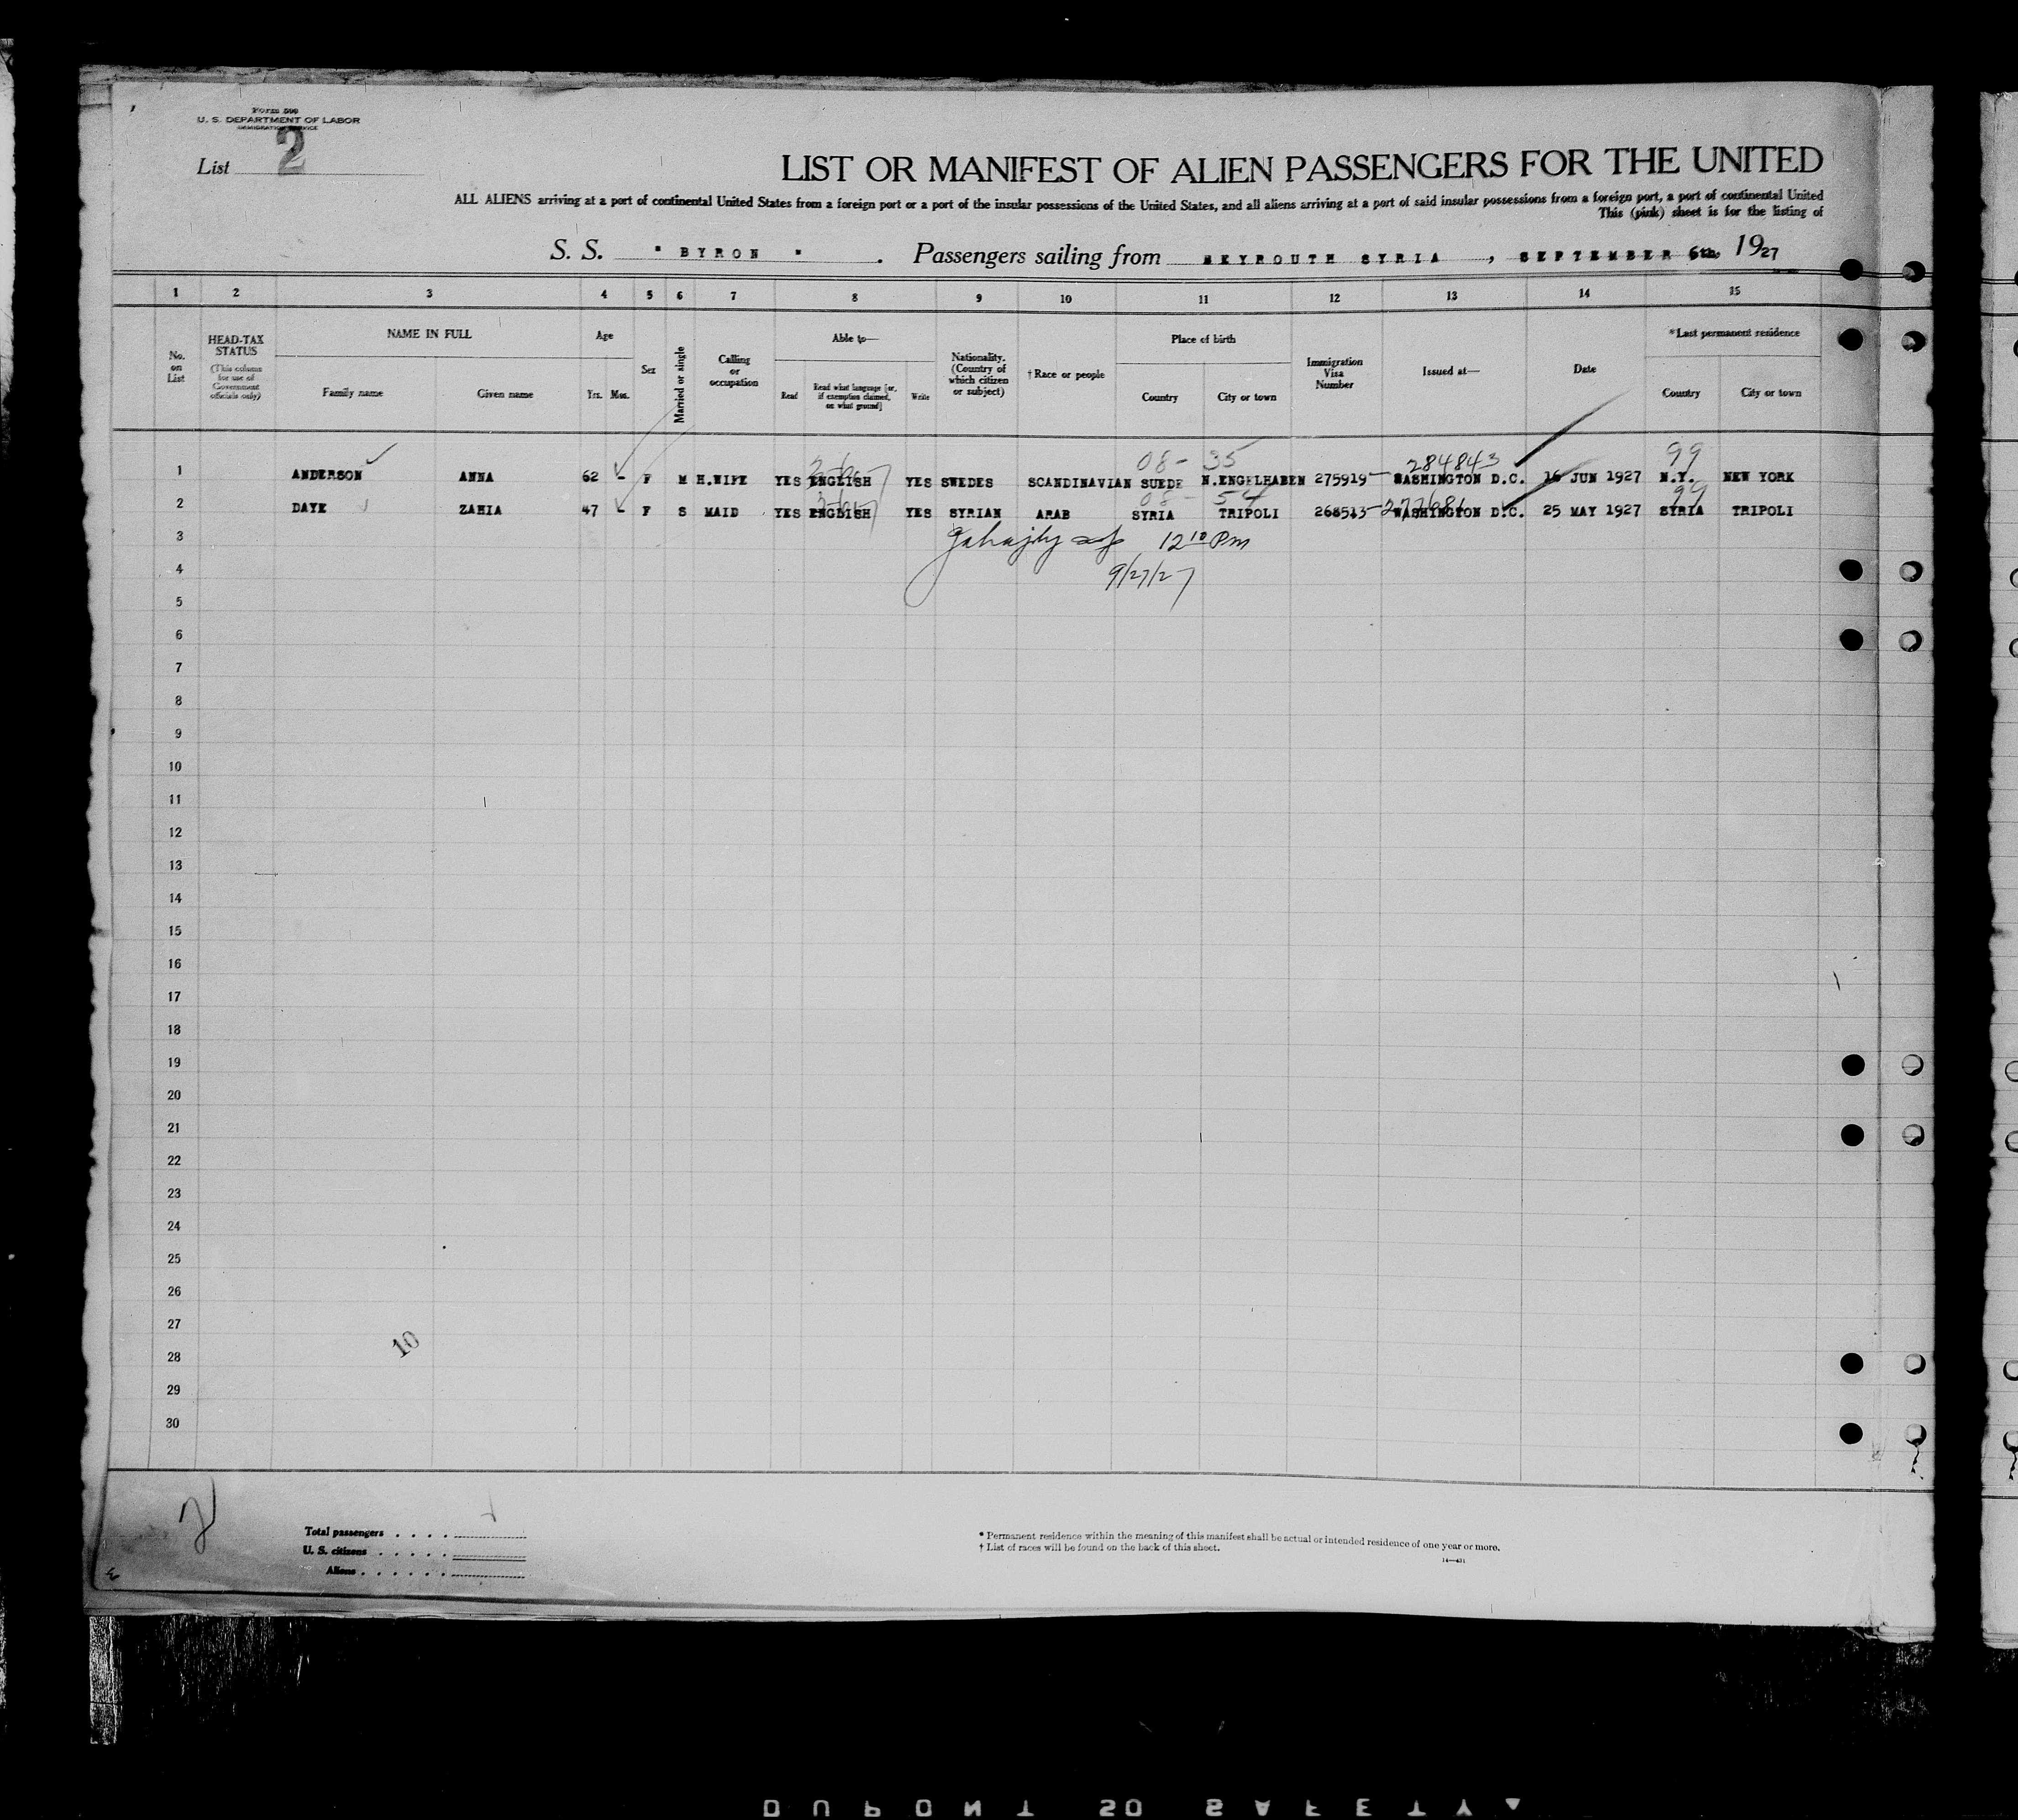 Form 500
U. S. DEPARTMENT OF LABOR
IMMIGRATION SERVICE
List 2
LIST OR MANIFEST OF ALIEN PASSENGERS FOR THE UNITED
ALL ALIENS arriving at a port of continental United States from a foreign port or a port of the insular possessions of the United States, and all aliens arriving at a port of said insular possessions from a foreign port, a port of continental United
This (pink) sheet is for the listing of
S. S. " BYRON " . Passengers sailing from BEYROUTH SYRIA , SEPTEMBER 6th. 1927
1 2 3 4 5 6 7 8 9 10 11 12 13 14 15
No. on List
HEAD-TAX STATUS (This column for use of Government officials only)
NAME IN FULL
Family name Given name
Age
Yrs. Mos.
Sex
Married or single
Calling or occupation
Able to—
Read
Read what language [or, if exemption claimed, on what ground]
Write
Nationality. (Country of which citizen or subject)
† Race or people
Place of birth
Country City or town
Immigration Visa Number
Issued at—
Date
*Last permanent residence
Country City or town
08- 35 284843 99
1 ANDERSON ANNA 62 - F M H.WIFE YES ENGLISH YES SWEDES SCANDINAVIAN SUEDE N.ENGELHABEN 275919 WASHINGTON D.C. 16 JUN 1927 N.Y. NEW YORK
08- 54 277681 99
2 DAYE ZAHIA 47 - F S MAID YES ENGLISH YES SYRIAN ARAB SYRIA TRIPOLI 268513 WASHINGTON D.C. 25 MAY 1927 SYRIA TRIPOLI
3 12 10 Pm
4 9/27/27
5
6
7
8
9
10
11
12
13
14
15
16
17
18
19
20
21
22
23
24
25
26
27
10
28
29
30
2
Total passengers
U. S. citizens
Aliens
* Permanent residence within the meaning of this manifest shall be actual or intended residence of one year or more.
† List of races will be found on the back of this sheet.
14—431
DUPONT 50 SAFETY